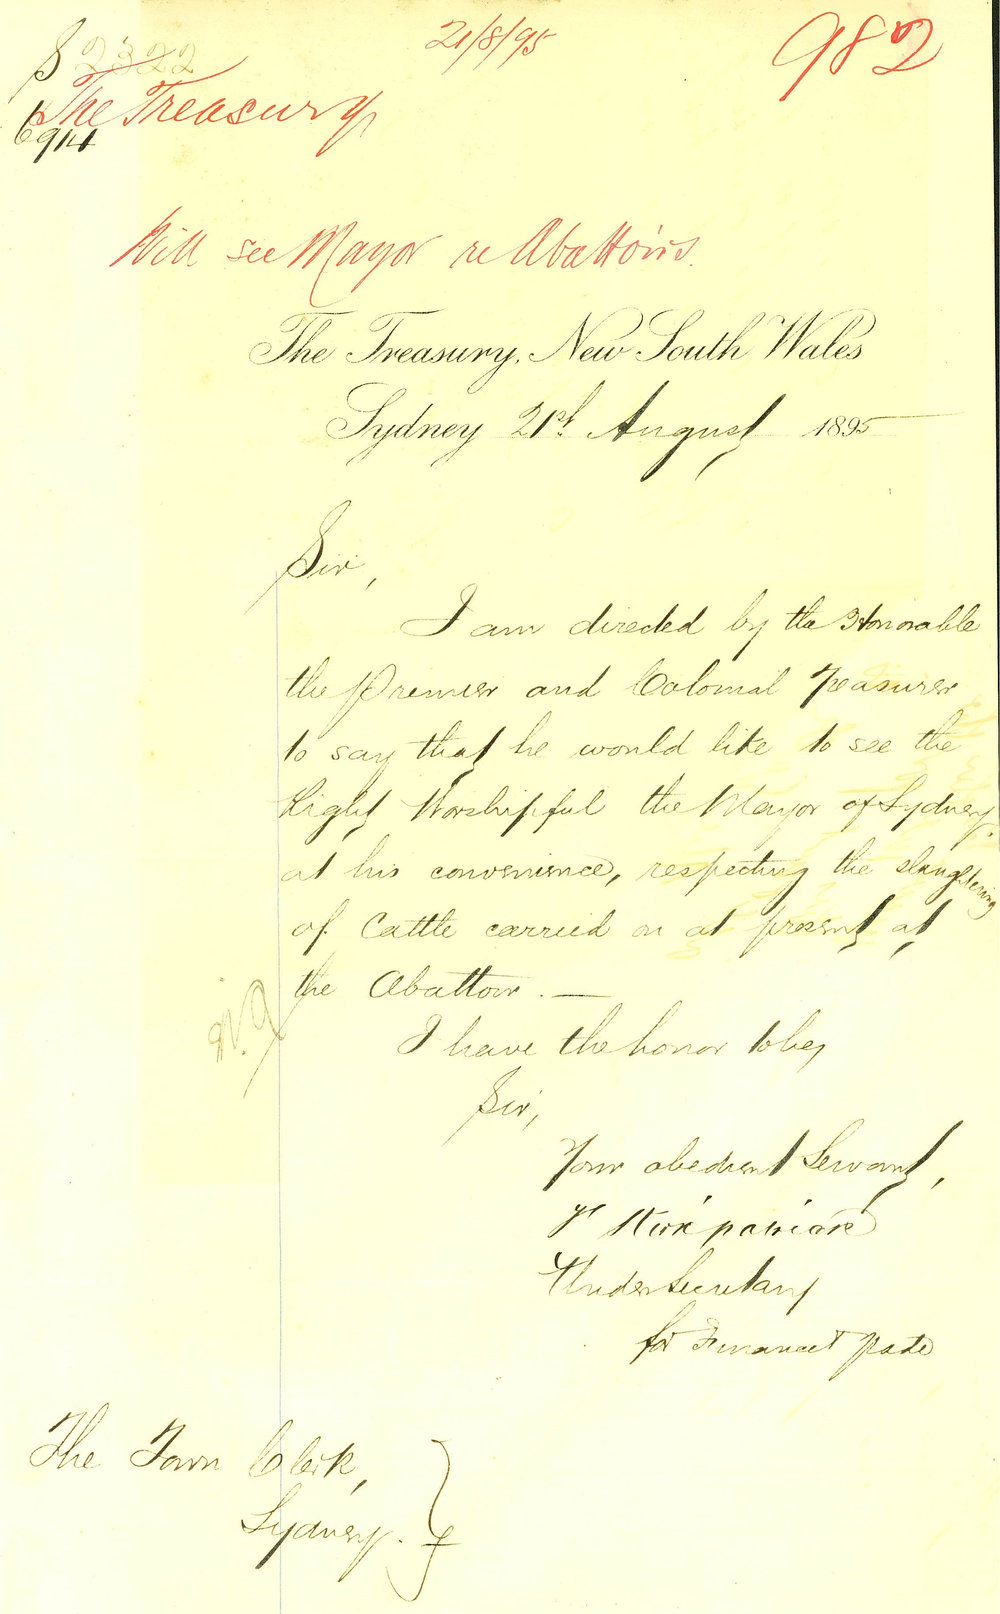 S 2322
21/8/95
982
The Treasury
6914
Will see Mayor re Abattoirs.
The Treasury, New South Wales
Sydney 21st August 1895
Sir,
I am directed by the Honorable
the Premier and Colonial Treasurer
to say that he would like to see the
Right Worshipful the Mayor of Sydney,
at his convenience, respecting the slaughtering
of Cattle carried on at present at
the Abattoir. —
I have the honor to be,
Sir,
Your obedient Servant,
Kirkpatrick
Under Secretary
for Finance & Trade
The Town Clerk,
Sydney.